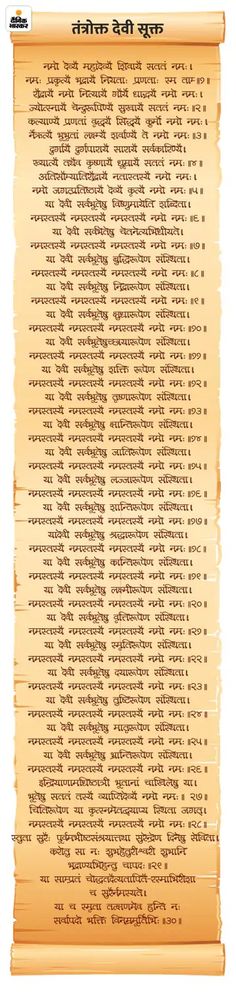 दैनिक भास्कर
तंत्रोक्त देवी सूक्त
नमो देव्यै महादेव्यै शिवायै सततं नमः।
नमः प्रकृत्यै भद्रायै नियताः प्रणताः स्म ताम॥१॥
रौद्रायै नमो नित्यायै गौर्यै धात्र्यै नमो नमः।
ज्योत्स्नायै चेन्दुरूपिण्यै सुखायै सततं नमः॥२॥
कल्याण्यै प्रणतां वृद्धयै सिद्धयै कुर्मो नमो नमः।
नैर्ऋत्यै भूभृतां लक्ष्म्यै शर्वाण्यै ते नमो नमः॥३॥
दुर्गायै दुर्गपारायै सारायै सर्वकारिण्यै।
ख्यात्यै तथैव कृष्णायै धूम्रायै सततं नमः॥४॥
अतिसौम्यातिरौद्रायै नतास्तस्यै नमो नमः।
नमो जगत्प्रतिष्ठायै देव्यै कृत्यै नमो नमः॥५॥
या देवी सर्वभूतेषु विष्णुमायेति शब्दिता।
नमस्तस्यै नमस्तस्यै नमस्तस्यै नमो नमः॥६॥
या देवी सर्वभूतेषु चेतनेत्यभिधीयते।
नमस्तस्यै नमस्तस्यै नमस्तस्यै नमो नमः॥७॥
या देवी सर्वभूतेषु बुद्धिरूपेण संस्थिता।
नमस्तस्यै नमस्तस्यै नमस्तस्यै नमो नमः॥८॥
या देवी सर्वभूतेषु निद्रारूपेण संस्थिता।
नमस्तस्यै नमस्तस्यै नमस्तस्यै नमो नमः॥९॥
या देवी सर्वभूतेषु क्षुधारूपेण संस्थिता।
नमस्तस्यै नमस्तस्यै नमस्तस्यै नमो नमः॥१०॥
या देवी सर्वभूतेषुच्छायारूपेण संस्थिता।
नमस्तस्यै नमस्तस्यै नमस्तस्यै नमो नमः॥११॥
या देवी सर्वभूतेषु शक्ति रूपेण संस्थिता।
नमस्तस्यै नमस्तस्यै नमस्तस्यै नमो नमः॥१२॥
या देवी सर्वभूतेषु तृष्णारूपेण संस्थिता।
नमस्तस्यै नमस्तस्यै नमस्तस्यै नमो नमः॥१३॥
या देवी सर्वभूतेषु क्षान्तिरूपेण संस्थिता।
नमस्तस्यै नमस्तस्यै नमस्तस्यै नमो नमः॥१४॥
या देवी सर्वभूतेषु जातिरूपेण संस्थिता।
नमस्तस्यै नमस्तस्यै नमस्तस्यै नमो नमः॥१५॥
या देवी सर्वभूतेषु लज्जारूपेण संस्थिता।
नमस्तस्यै नमस्तस्यै नमस्तस्यै नमो नमः॥१६॥
या देवी सर्वभूतेषु शान्तिरूपेण संस्थिता।
नमस्तस्यै नमस्तस्यै नमस्तस्यै नमो नमः॥१७॥
यादेवी सर्वभूतेषु श्रद्धारूपेण संस्थिता।
नमस्तस्यै नमस्तस्यै नमस्तस्यै नमो नमः॥१८॥
या देवी सर्वभूतेषु कान्तिरूपेण संस्थिता।
नमस्तस्यै नमस्तस्यै नमस्तस्यै नमो नमः॥१९॥
या देवी सर्वभूतेषु लक्ष्मीरूपेण संस्थिता।
नमस्तस्यै नमस्तस्यै नमस्तस्यै नमो नमः॥२०॥
या देवी सर्वभूतेषु वृत्तिरूपेण संस्थिता।
नमस्तस्यै नमस्तस्यै नमस्तस्यै नमो नमः॥२१॥
या देवी सर्वभूतेषु स्मृतिरूपेण संस्थिता।
नमस्तस्यै नमस्तस्यै नमस्तस्यै नमो नमः॥२२॥
या देवी सर्वभूतेषु दयारूपेण संस्थिता।
नमस्तस्यै नमस्तस्यै नमस्तस्यै नमो नमः॥२३॥
या देवी सर्वभूतेषु तुष्टिरूपेण संस्थिता।
नमस्तस्यै नमस्तस्यै नमस्तस्यै नमो नमः॥२४॥
या देवी सर्वभूतेषु मातृरूपेण संस्थिता।
नमस्तस्यै नमस्तस्यै नमस्तस्यै नमो नमः॥२५॥
या देवी सर्वभूतेषु भ्रान्तिरूपेण संस्थिता।
नमस्तस्यै नमस्तस्यै नमस्तस्यै नमो नमः॥२६॥
इन्द्रियाणामधिष्ठात्री भूतानां चाखिलेषु या।
भूतेषु सततं तस्यै व्याप्तिदेव्यै नमो नमः॥ २७॥
चितिरूपेण या कृत्स्नमेतद्व्याप्य स्थिता जगत्।
नमस्तस्यै नमस्तस्यै नमस्तस्यै नमो नमः॥२८॥
स्तुता सुरैः पूर्वमभीष्टसंश्रयात्तथा सुरेन्द्रेण दिनेषु सेविता।
करोतु सा नः शुभहेतुरीश्वरी शुभानि
भद्राण्यभिहन्तु चापदः॥२९॥
या साम्प्रतं चोद्धतदैत्यतापितै-रस्माभिरीशा
च सुरैर्नमस्यते।
या च स्मृता तत्क्षणमेव हन्ति नः
सर्वापदो भक्ति विनम्रमूर्तिभिः॥३०॥